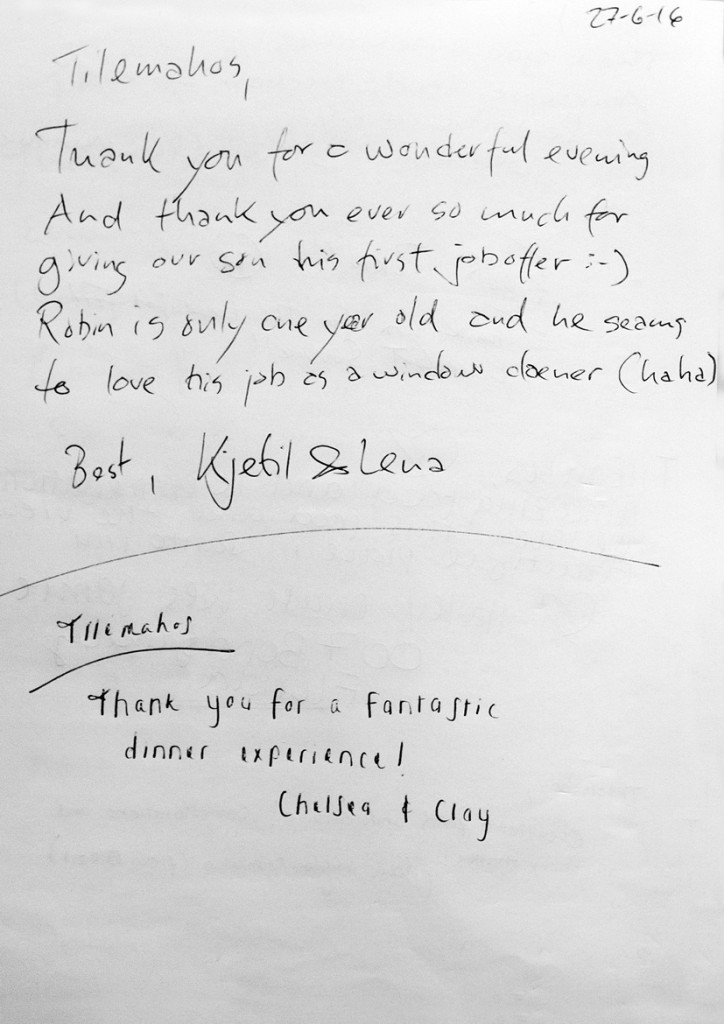 27-6-16
Tilemahos,
Thank you for a wonderful evening
And thank you ever so much for
giving our son his first job offer :-)
Robin is only one year old and he seams
to love his job as a window cleener (haha)
Best, Kjetil & Lena
Tilemahos
Thank you for a fantastic
dinner experience!
Chelsea & Clay